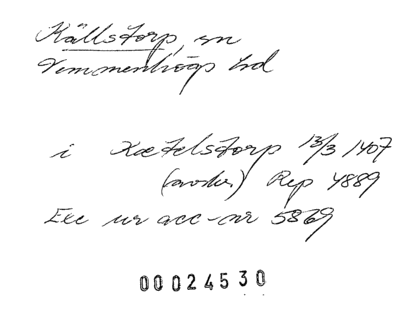 Källstorp, sn
Vemmenhögs hd
i Kætelstorp 13/3 1407
(avskr.) Rep 4889
Exc ur acc-nr 5869
00024530